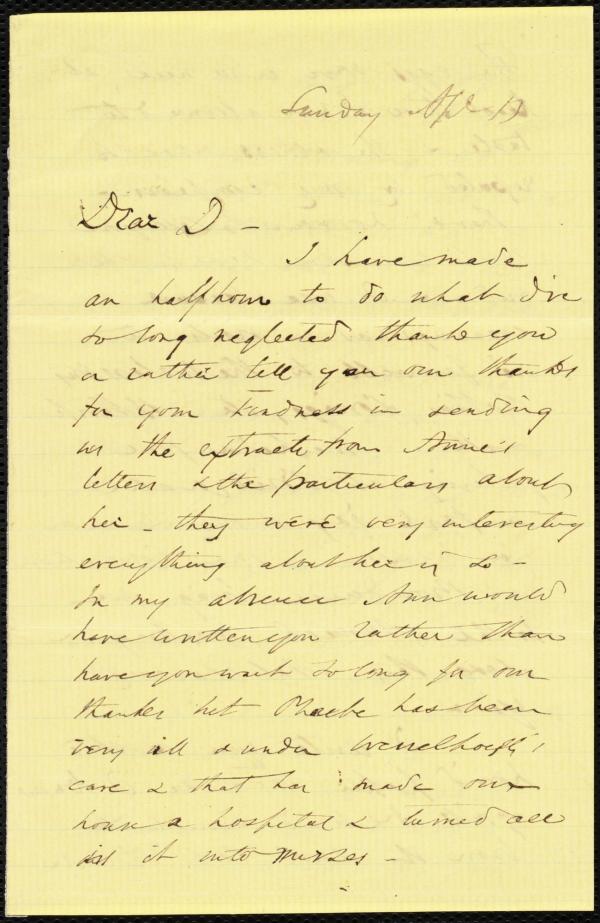 Sunday Apl 13
Dear D -
I have made
an half hour to do what I've
so long neglected thank you
or rather tell you our thanks
for your kindness in sending
us the extracts from Anne's
letters & the particulars about
her - they were very interesting
everything about her is so -
In my absence Ann would
have written you rather than
have you wait so long for our
thanks but Phoebe has been
very ill & under Wesselhoeft's
care & that has made our
house a hospital & turned all
in it into nurses -